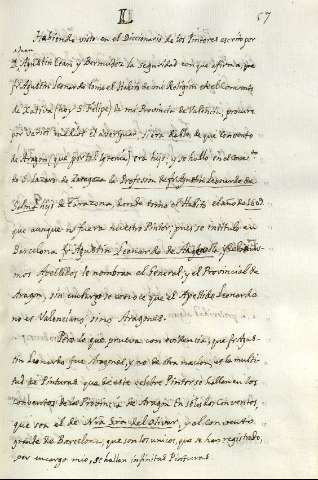 L
57
Habiendo visto en el Diccionario de los Pintores escrito por
Agustin Cean y Bermudez la seguridad con que afirma, que
fr. Agustin Leonardo tomó el Habito de mi Religion en el Convento
de Xativa (hoy S. Felipe) de mi Provincia de Valencia, procuré
por varios medios el averiguar, si era hijo de que Convento
de Aragon, (que por tal le tenia) era hijo, y se halló en el Conv.to
de S. Lazaro de Zaragoza la Profesion de fr. Agustin Leonardo de
hijo de Tarazona, donde tomó el Habito el año de
que aunque no fuera nuestro Pintor, pues se intituló en
Barcelona fr. Agustin Leonardo de Argensola,
mos Apellidos le nombran el General, y el Provincial de
Aragon, sin embargo se conoce que el Apellido Leonardo
no es Valenciano, sino Aragones.
Pero lo que prueba con evidencia, que fr. Agus-
tin Leonardo fue Aragones, y no de otra nacion, es la multi-
tud de Pinturas que de este celebre Pintor se hallan en los
Conventos de la Provincia de Aragon. En solos los Conventos,
que son el de Nra. Sra. del Olivar, y el Convento
grande de Barcelona, que son los unicos, que se han registrado,
por encargo mio, se hallan infinitas Pinturas.